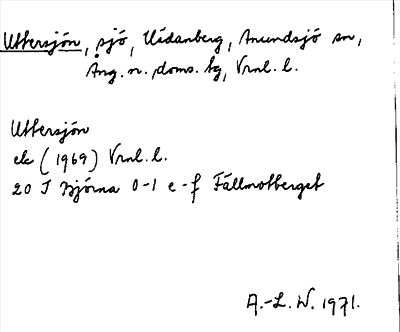 Uttersjön, sjö, Uddanberg, Anundsjö sn,
Ång. n. doms. bg, Vrnl. l.
Uttersjön
ek (1969) Vrnl. l.
20 J Björna 0-1 e-f Fällmotberget
A.-L. W. 1971.